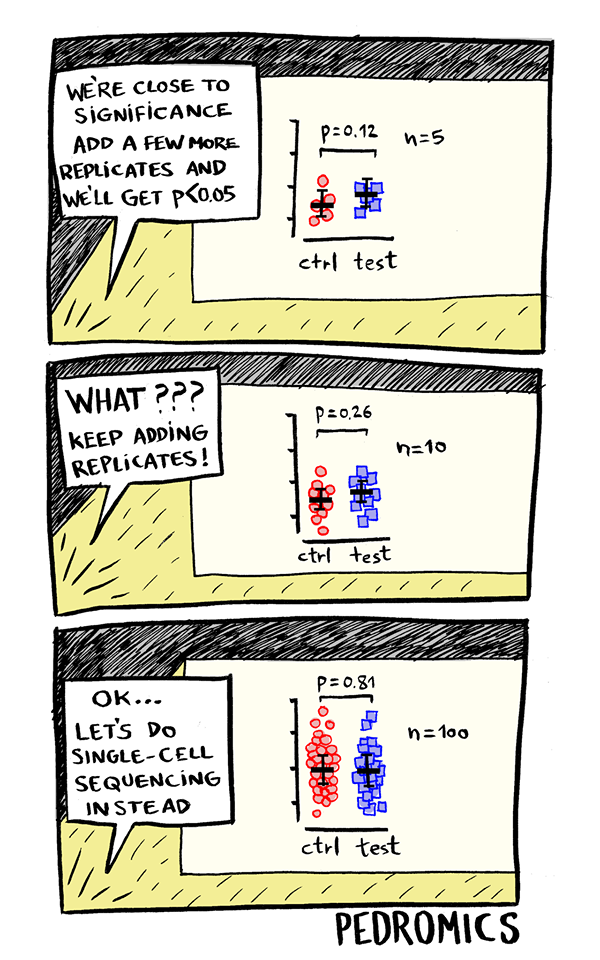 WE'RE CLOSE TO
SIGNIFICANCE
ADD A FEW MORE
REPLICATES AND
WE'LL GET P<0.05
p=0.12
n=5
ctrl test
WHAT ???
KEEP ADDING
REPLICATES!
p=0.26
n=10
ctrl test
OK...
LET'S DO
SINGLE-CELL
SEQUENCING
INSTEAD
p=0.81
n=100
ctrl test
PEDROMICS